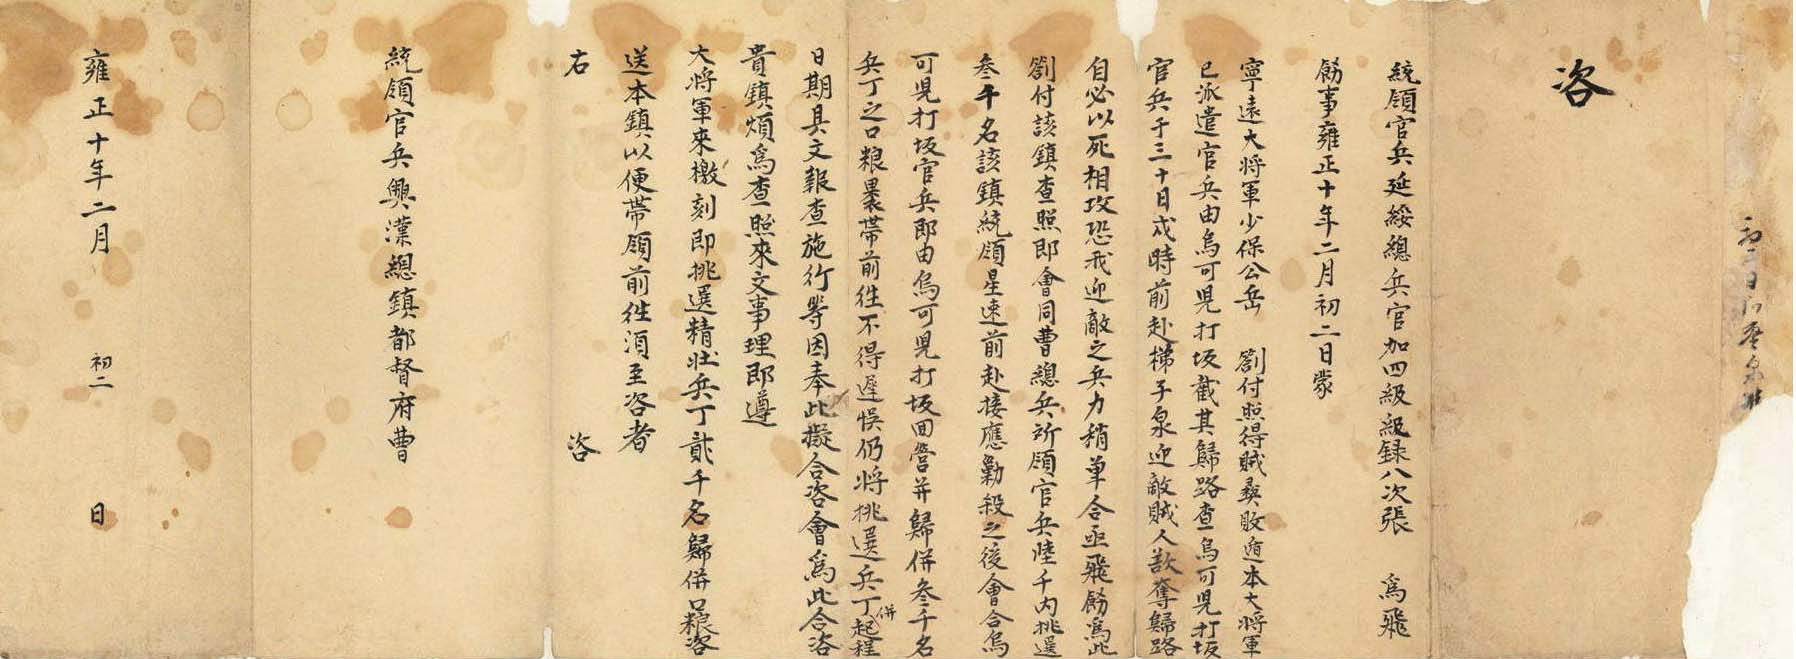 咨
統領官兵延綏總兵官加四級紀録八次張　為飛
飭事雍正十年二月初二日蒙
寧遠大將軍少保公岳　劄付照得賊彝敗遁本大將軍
已派遣官兵由烏可克打坂截其歸路查烏可克打坂
官兵于三十日戌時前赴梯子泉迎敵賊人歆奪歸路
自必以死相攻恐我迎敵之兵力稍單合亟飛飭為此
劄付該鎮查照即會同曹總兵所領官兵陸千內挑選
叁千名該鎮統領星速前赴接應勦殺之後會合烏
可児打坂官兵即由烏可児打坂回營并歸併叁千名
兵丁之口粮裹帶前徃不得遲悮仍將挑選兵丁併起程
日期具文報查施行等因奉此擬合咨會為此合咨
貴鎮煩為查照來文事理即遵
大將軍來檄刻即挑選精壯兵丁貳千名歸併口粮咨
送本鎮以便帶領前徃湏至咨者
右　咨
統領官兵興漢總鎮都督府曹
雍正十年二月　初二　日